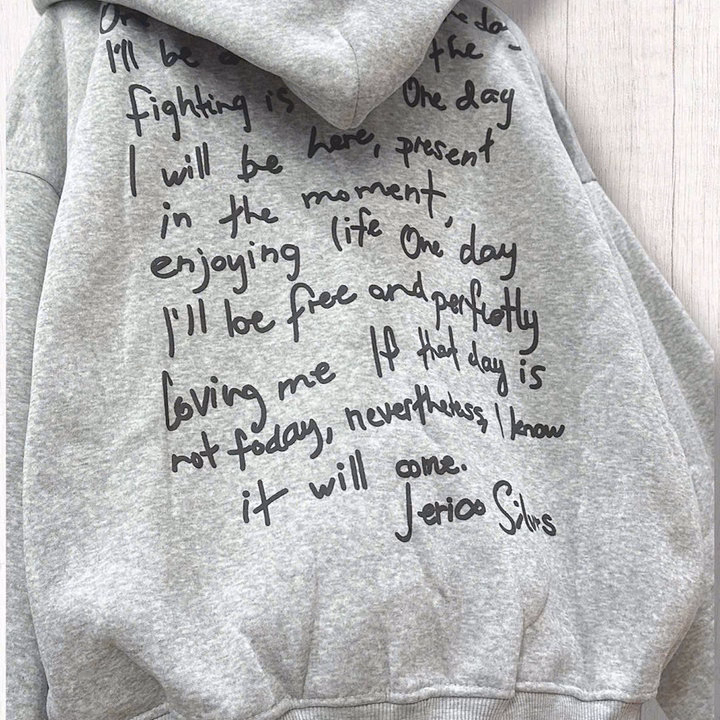 I'll be the
fighting is One day
I will be here, present
in the moment,
enjoying life One day
I'll be free and perfectly
loving me If that day is
not today, nevertheless, I know
it will come.